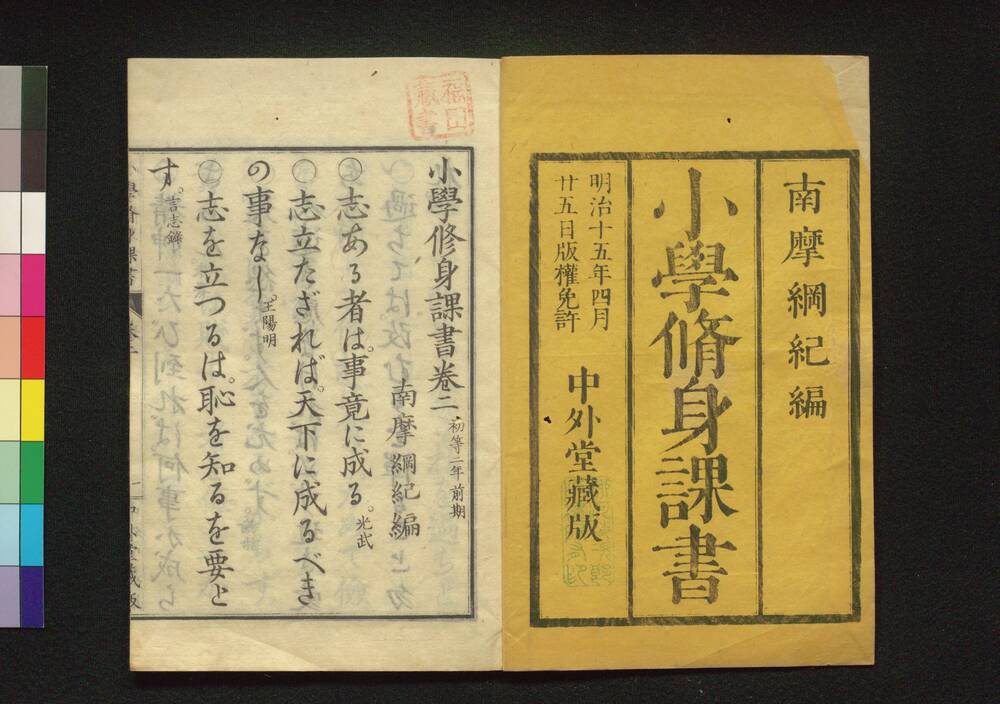 南摩綱紀編
小學脩身課書
明治十五年四月
廿五日版權免許
中外堂藏版
福田
藏書
小學修身課書卷二 初等二年前期
南摩綱紀編
志ある者は。事竟に成る。光武
〇志立たざれば。天下に成るべき
の事なし。王陽明
志を立つるは。恥を知るを要と
す。言志錄